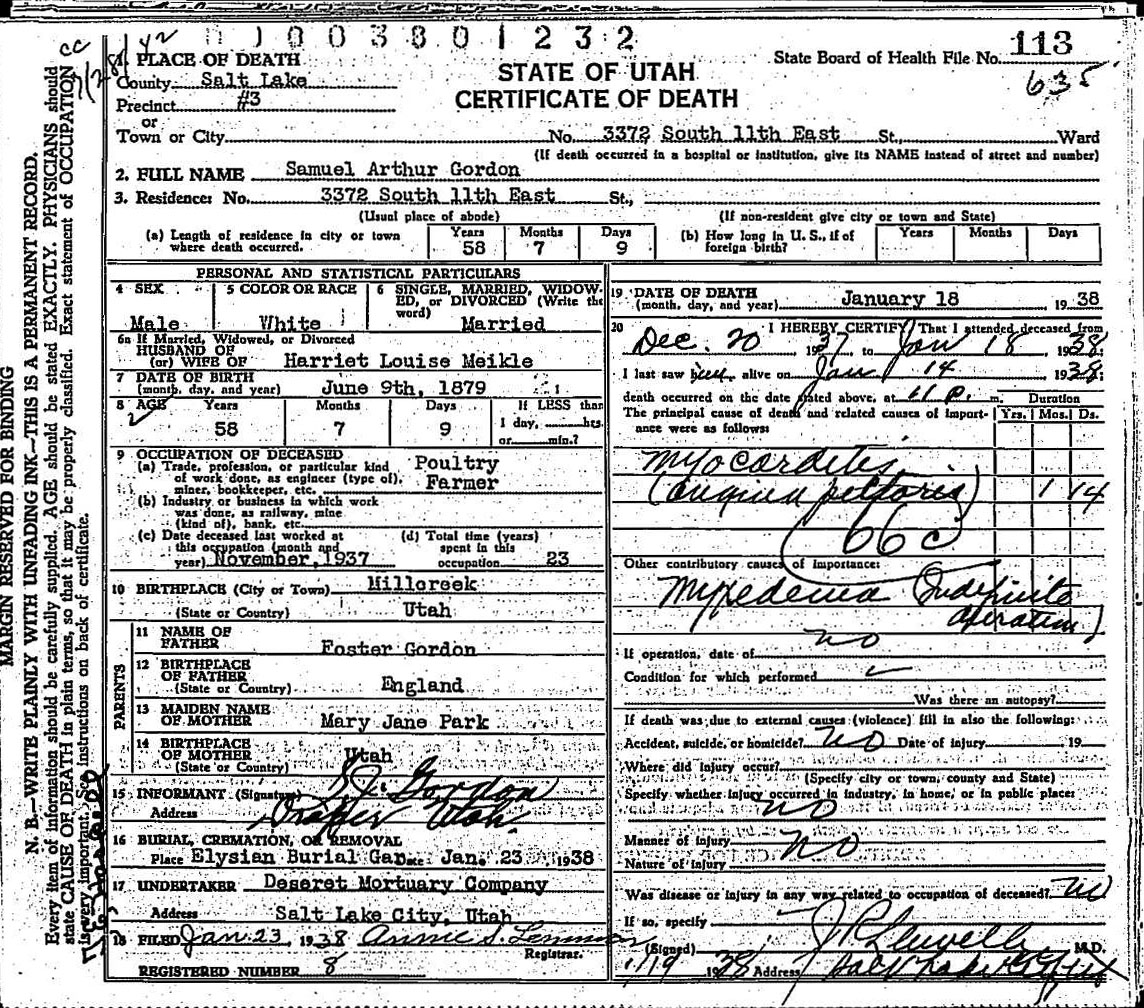 1 0 0 3 8 0 1 2 3 2
State Board of Health File No. 113
635
STATE OF UTAH
CERTIFICATE OF DEATH
1. PLACE OF DEATH
County Salt Lake
Precinct #3
or
Town or City No. 3372 South 11th East St., Ward
(If death occurred in a hospital or institution, give its NAME instead of street and number)
2. FULL NAME Samuel Arthur Gordon
3. Residence: No. 3372 South 11th East St.,
(Usual place of abode) (If non-resident give city or town and State)
(a) Length of residence in city or town where death occurred. Years 58 Months 7 Days 9
(b) How long in U. S., if of foreign birth? Years Months Days
PERSONAL AND STATISTICAL PARTICULARS
4 SEX Male
5 COLOR OR RACE White
6 SINGLE, MARRIED, WIDOWED, or DIVORCED (Write the word) Married
6a If Married, Widowed, or Divorced
HUSBAND OF
(or) WIFE OF Harriet Louise Meikle
7 DATE OF BIRTH
(month, day, and year) June 9th, 1879
8 AGE Years 58 Months 7 Days 9
If LESS than 1 day, hrs. or min.?
9 OCCUPATION OF DECEASED
(a) Trade, profession, or particular kind of work done, as engineer (type of), miner, bookkeeper, etc. Poultry Farmer
(b) Industry or business in which work was done, as railway, mine (kind of), bank, etc.
(c) Date deceased last worked at this occupation (month and year) November, 1937
(d) Total time (years) spent in this occupation 23
10 BIRTHPLACE (City or Town) Millcreek
(State or Country) Utah
PARENTS
11 NAME OF FATHER Foster Gordon
12 BIRTHPLACE OF FATHER
(State or Country) England
13 MAIDEN NAME OF MOTHER Mary Jane Park
14 BIRTHPLACE OF MOTHER
(State or Country) Utah
15 INFORMANT (Signature) Gordon
Address Draper Utah.
16 BURIAL, CREMATION, OR REMOVAL
Place Elysian Burial Gar Date Jan. 23 1938
17 UNDERTAKER Deseret Mortuary Company
Address Salt Lake City, Utah
18 FILED Jan. 23, 1938 Annie S.
Registrar.
REGISTERED NUMBER 8
19 DATE OF DEATH
(month, day, and year) January 18, 1938
20 I HEREBY CERTIFY, That I attended deceased from
Dec. 20 1937 to Jan 18 1938;
I last saw him alive on Jan 14 1938;
death occurred on the date stated above, at 11 P. m.
The principal cause of death and related causes of importance were as follows:
Duration
Yrs. Mos. Ds.
Myocarditis,
(Angina pectoris) 1 14
66 c
Other contributory causes of importance:
Myxedema (Indefinite
duration)
If operation, date of no
Condition for which performed
Was there an autopsy?
If death was due to external causes (violence) fill in also the following:
Accident, suicide, or homicide? NO Date of injury 19
Where did injury occur?
(Specify city or town, county and State)
Specify whether injury occurred in industry, in home, or in public place:
no
Manner of injury no
Nature of injury
Was disease or injury in any way related to occupation of deceased? no
If so, specify
(Signed) M.D.
1/19 1938 Address Salt Lake City
MARGIN RESERVED FOR BINDING
N. B.—WRITE PLAINLY WITH UNFADING INK—THIS IS A PERMANENT RECORD.
Every item of information should be carefully supplied. AGE should be stated EXACTLY. PHYSICIANS should
state CAUSE OF DEATH in plain terms, so that it may be properly classified. Exact statement of OCCUPATION
is very important. See instructions on back of certificate.